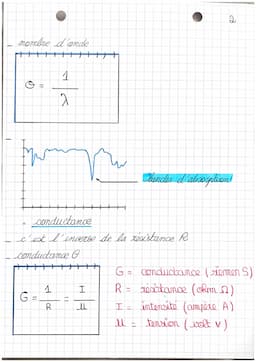 2
nombre d'onde
σ = 1/λ
bandes d'absorption
conductance
c'est l'inverse de la résistance R
conductance G
G = 1/R = I/U
G = conductance (siemen S)
R = résistance (ohm Ω)
I = intensité (ampère A)
U = tension (volt V)